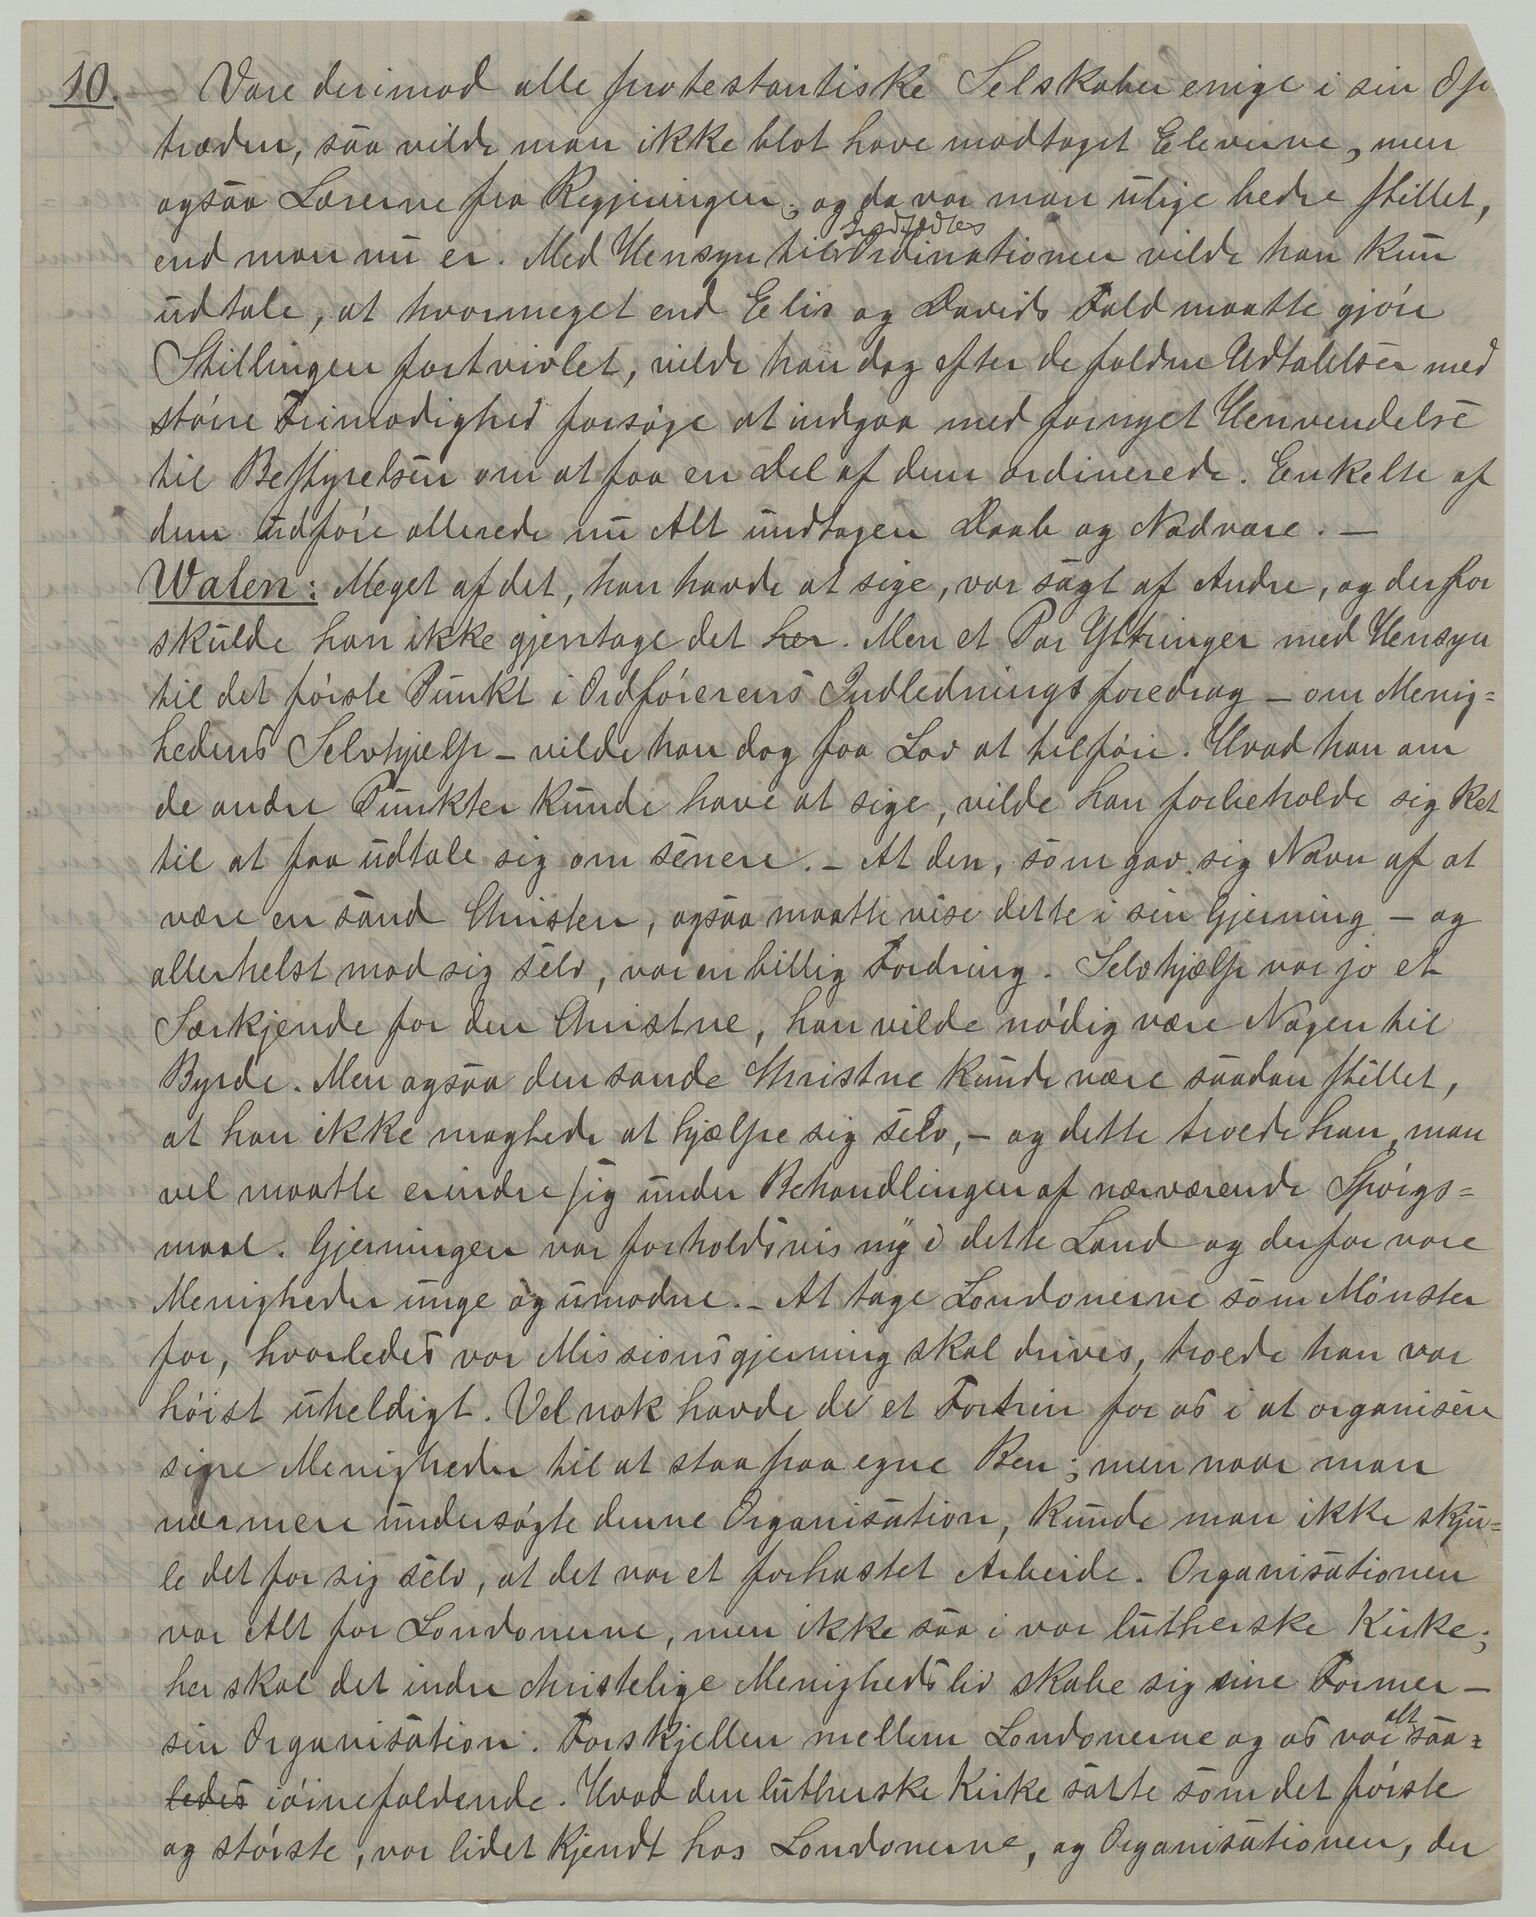 10. Vare derimod alle protestantiske Selskaber enige i sin Op
træden, saa vilde man ikke blot have modtaget Eleverne, men
ogsaa Lærerne fra Regjeringen; og da var man ulige bedre stillet,
end man nu er. Med Hensyn til Indfødtes Ordinationen vilde han kun
udtale, at hvormeget end Elis og Davids Fald maatte gjøre
Stillingen fortvivlet, vilde han dog efter de faldne Udtalelser med
større Frimodighed forsøge at indgaa med fornyet Henvendelse
til Bestyrelsen om at faa en Del af dem ordinerede. Enkelte af
dem udføre allerede nu Alt undtagen Daab og Nadvære. —
Walen: Meget af det, han havde at sige, var sagt af Andre, og derfor
skulde han ikke gjentage det her. Men et Par Yttringer med Hensyn
til det første Punkt i Ordførerens Indledningsforedrag – om Menig=
hedens Selvhjælp – vilde han dog faa Lov at tilføie. Hvad han om
de andre Punkter kunde have at sige, vilde han forbeholde sig Ret
til at faa udtale sig om senere. – At den, som gav sig Navn af at
være en sand Christen, ogsaa maatte vise dette i sin Gjerning – og
allerhelst mod sig selv, var en billig Fordring. Selvhjælp var jo et
Særkjende for den Christne, han vilde nødig være Nogen til
Byrde. Men ogsaa den sande Christne kunde være saadan stillet,
at han ikke magtede at hjælpe sig selv, – og dette troede han, man
vel maatte erindre sig under Behandlingen af nærværende Spørgs=
maal. Gjerningen var forholdsvis ny i dette Land og derfor vore
Menigheder unge og umodne. – At tage Londonerne som Mønster
for, hvorledes vor Missionsgjerning skal drives, troede han var
høist uheldigt. Vel nok havde de et Fortrin for os i at organisere
sine Menigheder til at staa paa egne Ben; men naar man
nærmere undersøgte denne Organisation, kunde man ikke skju=
le det for sig selv, at det var et forhastet Arbeide. Organisationen
var Alt for Londonerne, men ikke saa i vor lutherske Kirke;
her skal det indre christelige Menighedsliv skabe sig sine Former –
sin Organisation. Forskjellen mellem Londonerne og os var alt saa=
ledes iøinefaldende. Hvad den lutherske Kirke satte som det første
og største, var lidet kjendt hos Londonerne, og Organisationen, der